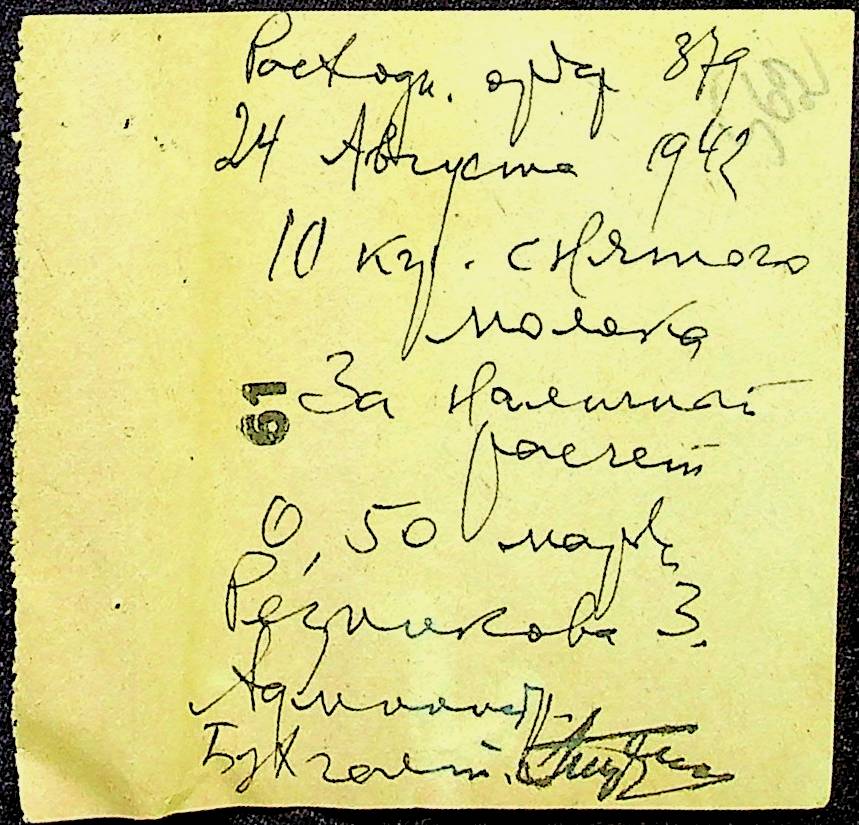 Расходн. ордер 379
24 Августа 1942
10 кг. снятого
молока
61
За наличный
расчет
0,50 марк
Резникова З.
Админист.
Бухгалт.